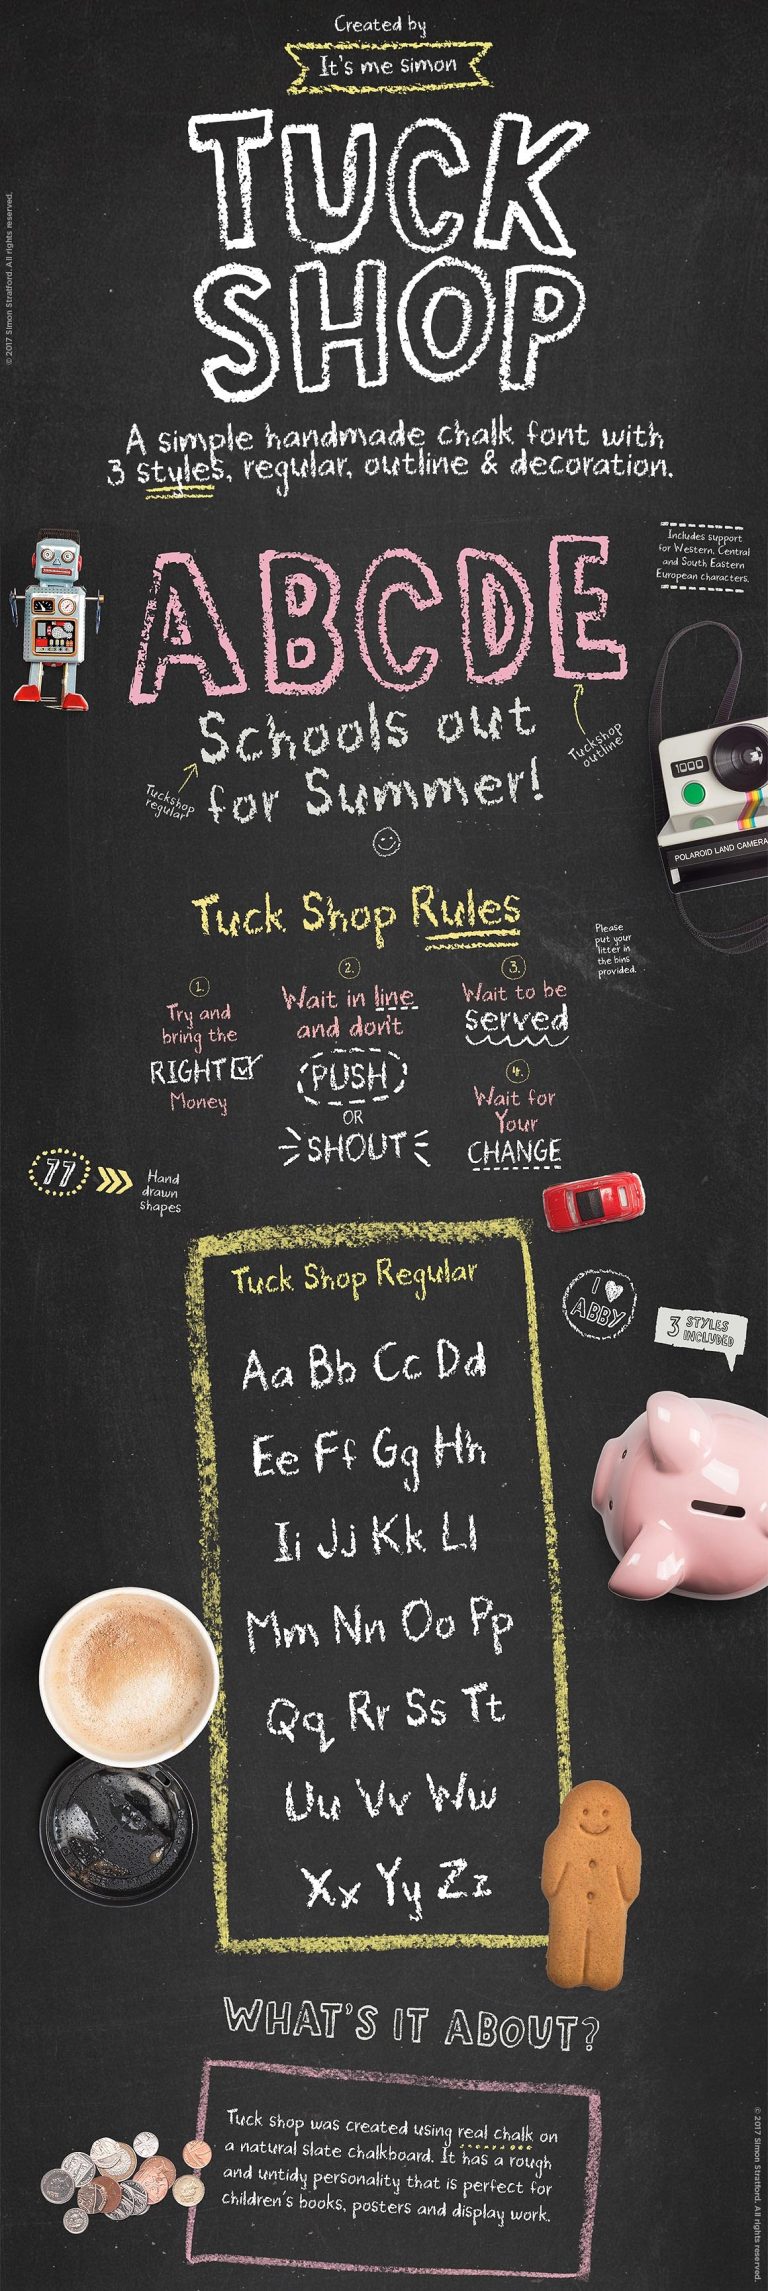 Created by
It's me simon
TUCK
SHOP
A simple handmade chalk font with
3 styles, regular, outline & decoration.
© 2017 Simon Stratford. All rights reserved.
Includes support
for Western, Central
and South Eastern
European characters.
ABCDE
Schools out
for Summer!
Tuckshop
outline
Tuckshop
regular
1000
POLAROID LAND CAMERA
Tuck Shop Rules
Please
put your
litter in
the bins
provided.
1.
Try and
bring the
RIGHT
Money
2.
Wait in line
and don't
PUSH
OR
SHOUT
3.
Wait to be
served
4.
Wait for
Your
CHANGE
77
Hand
drawn
shapes
Tuck Shop Regular
I
ABBY
3 STYLES
INCLUDED
Aa Bb Cc Dd
Ee Ff Gg Hh
Ii Jj Kk Ll
Mm Nn Oo Pp
Qq Rr Ss Tt
Uu Vv Ww
Xx Yy Zz
WHAT'S IT ABOUT?
Tuck shop was created using real chalk on
a natural slate chalkboard. It has a rough
and untidy personality that is perfect for
children's books, posters and display work.
© 2017 Simon Stratford. All rights reserved.